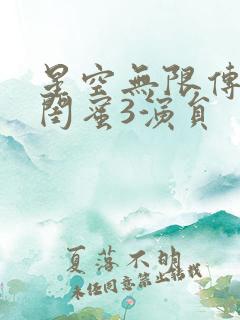 星空無限傳
閨蜜3-演員
夏落不朗
未经同意禁止转载